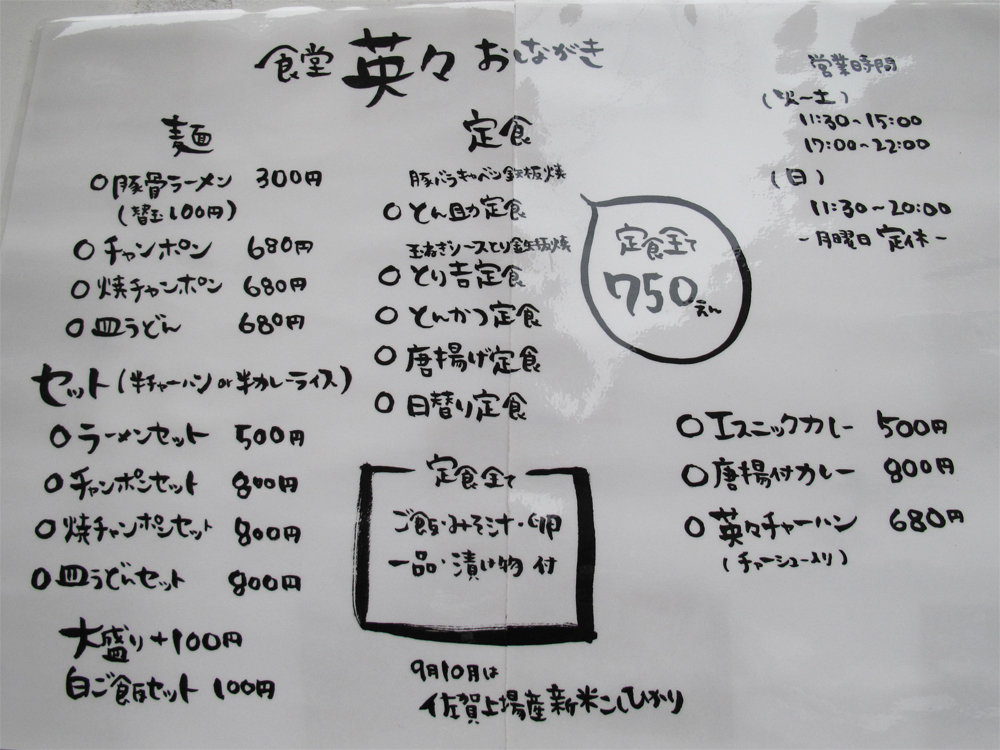 食堂 英々 おしながき
麺
○豚骨ラーメン 300円
(替玉100円)
○チャンポン 680円
○焼チャンポン 680円
○皿うどん 680円
セット(半チャーハンor半カレーライス)
○ラーメンセット 500円
○チャンポンセット 800円
○焼チャンポンセット 800円
○皿うどんセット 800円
大盛り+100円
白ご飯セット 100円
定食
豚バラキャベツ鉄板焼
○とん助定食
玉ねぎシースとり鉄板焼
○とり吉定食
○とんかつ定食
○唐揚げ定食
○日替り定食
定食全て
750えん
定食全て
ご飯・みそ汁・卵
一品・漬け物 付
9月10月は
佐賀上場産新米こしひかり
営業時間
(火～土)
11:30～15:00
17:00～22:00
(日)
11:30～20:00
-月曜日 定休-
○エスニックカレー 500円
○唐揚付カレー 800円
○英々チャーハン 680円
(チャーシュー入り)